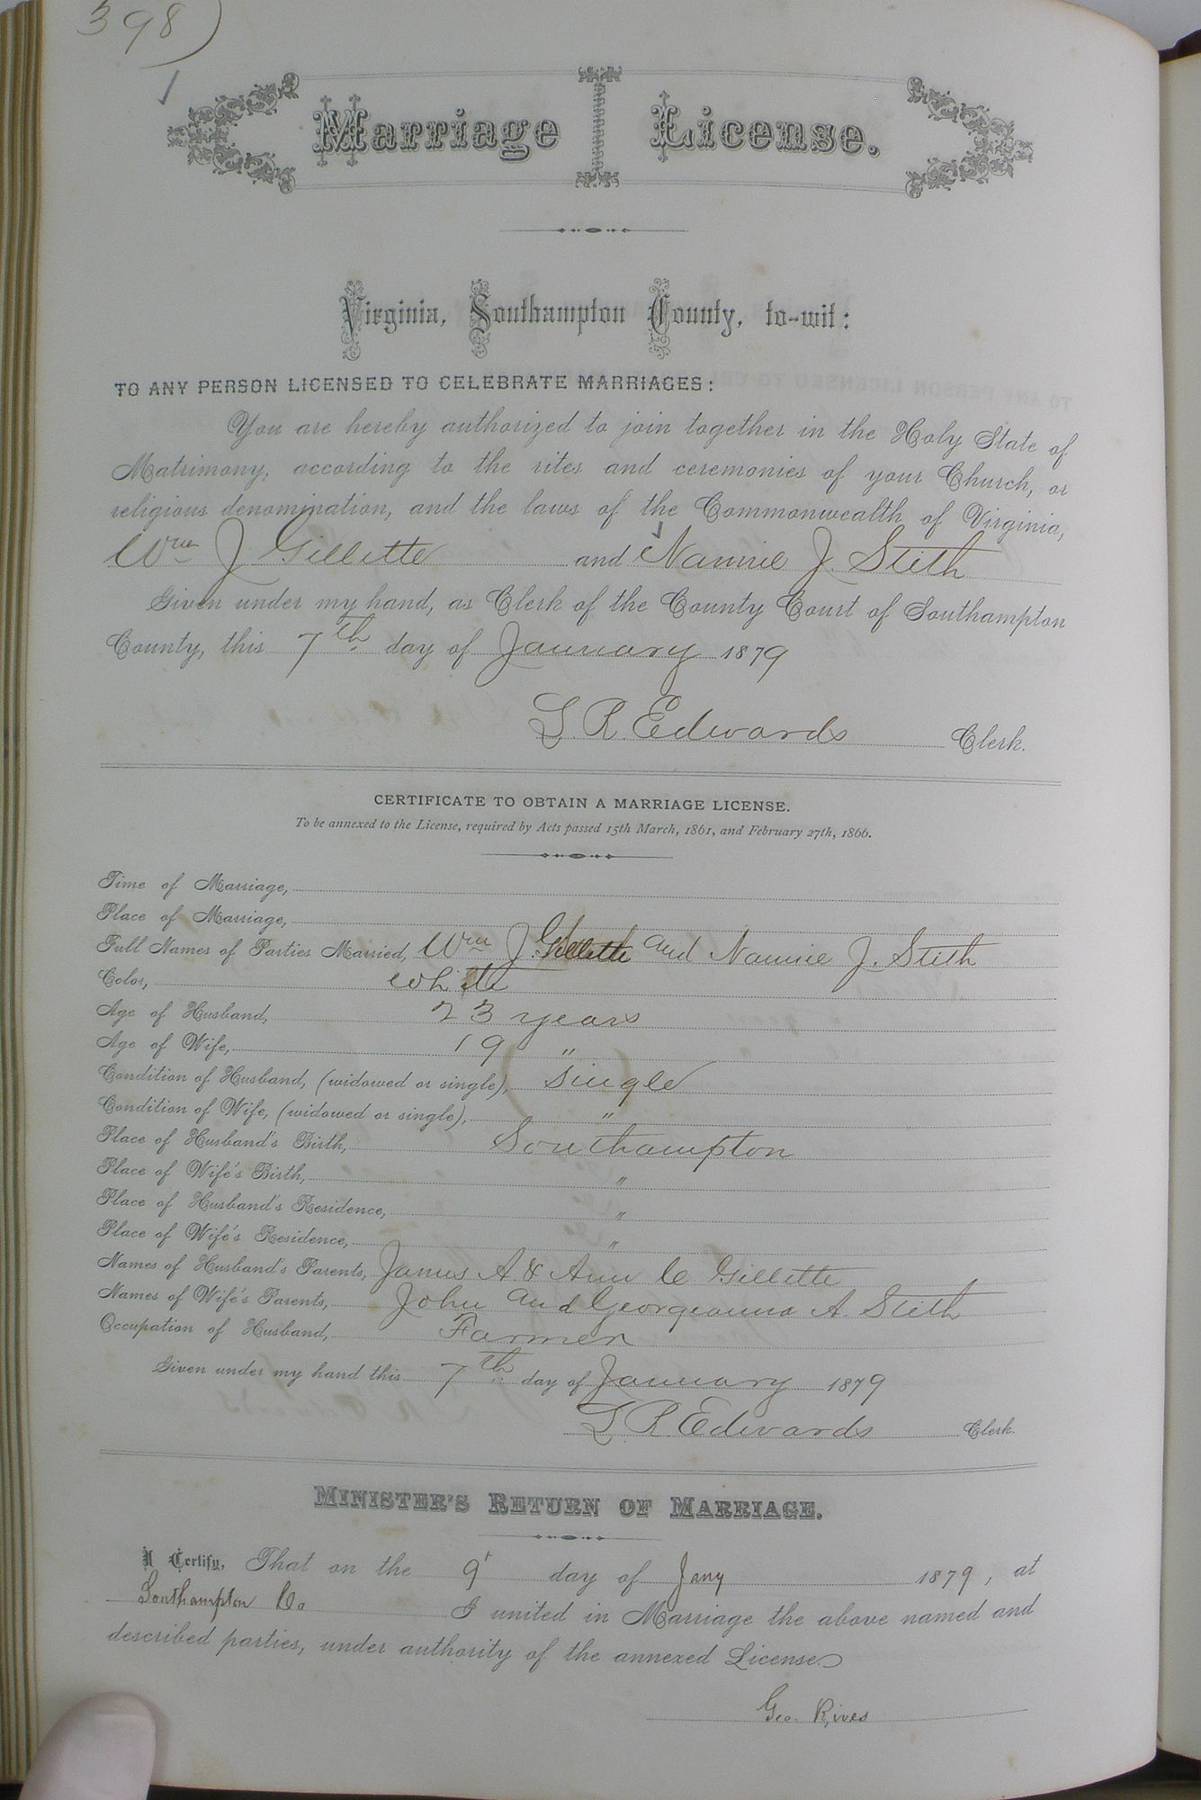 398)
Marriage License.
Virginia, Southampton County, to-wit:
TO ANY PERSON LICENSED TO CELEBRATE MARRIAGES:
You are hereby authorized to join together in the Holy State of
Matrimony, according to the rites and ceremonies of your Church, or
religious denomination, and the laws of the Commonwealth of Virginia,
Wm J Gillette and Nannie J. Stith
Given under my hand, as Clerk of the County Court of Southampton
County, this 7th day of January 1879
L. R. Edwards Clerk.
CERTIFICATE TO OBTAIN A MARRIAGE LICENSE.
To be annexed to the License, required by Acts passed 15th March, 1861, and February 27th, 1866.
Time of Marriage,
Place of Marriage,
Full Names of Parties Married, Wm J. Gillette and Nannie J. Stith
Color, white
Age of Husband, 23 years
Age of Wife, 19 "
Condition of Husband, (widowed or single), single
Condition of Wife, (widowed or single), "
Place of Husband's Birth, Southampton
Place of Wife's Birth, "
Place of Husband's Residence, "
Place of Wife's Residence, "
Names of Husband's Parents, James A. & Ann C Gillette
Names of Wife's Parents, John and Georgeanna A. Stith
Occupation of Husband, Farmer
Given under my hand this 7th day of January 1879
L R Edwards Clerk.
MINISTER'S RETURN OF MARRIAGE.
I Certify, That on the 9 day of Jany 1879, at
Southampton Co I united in Marriage the above named and
described parties, under authority of the annexed License.
Geo. Rives